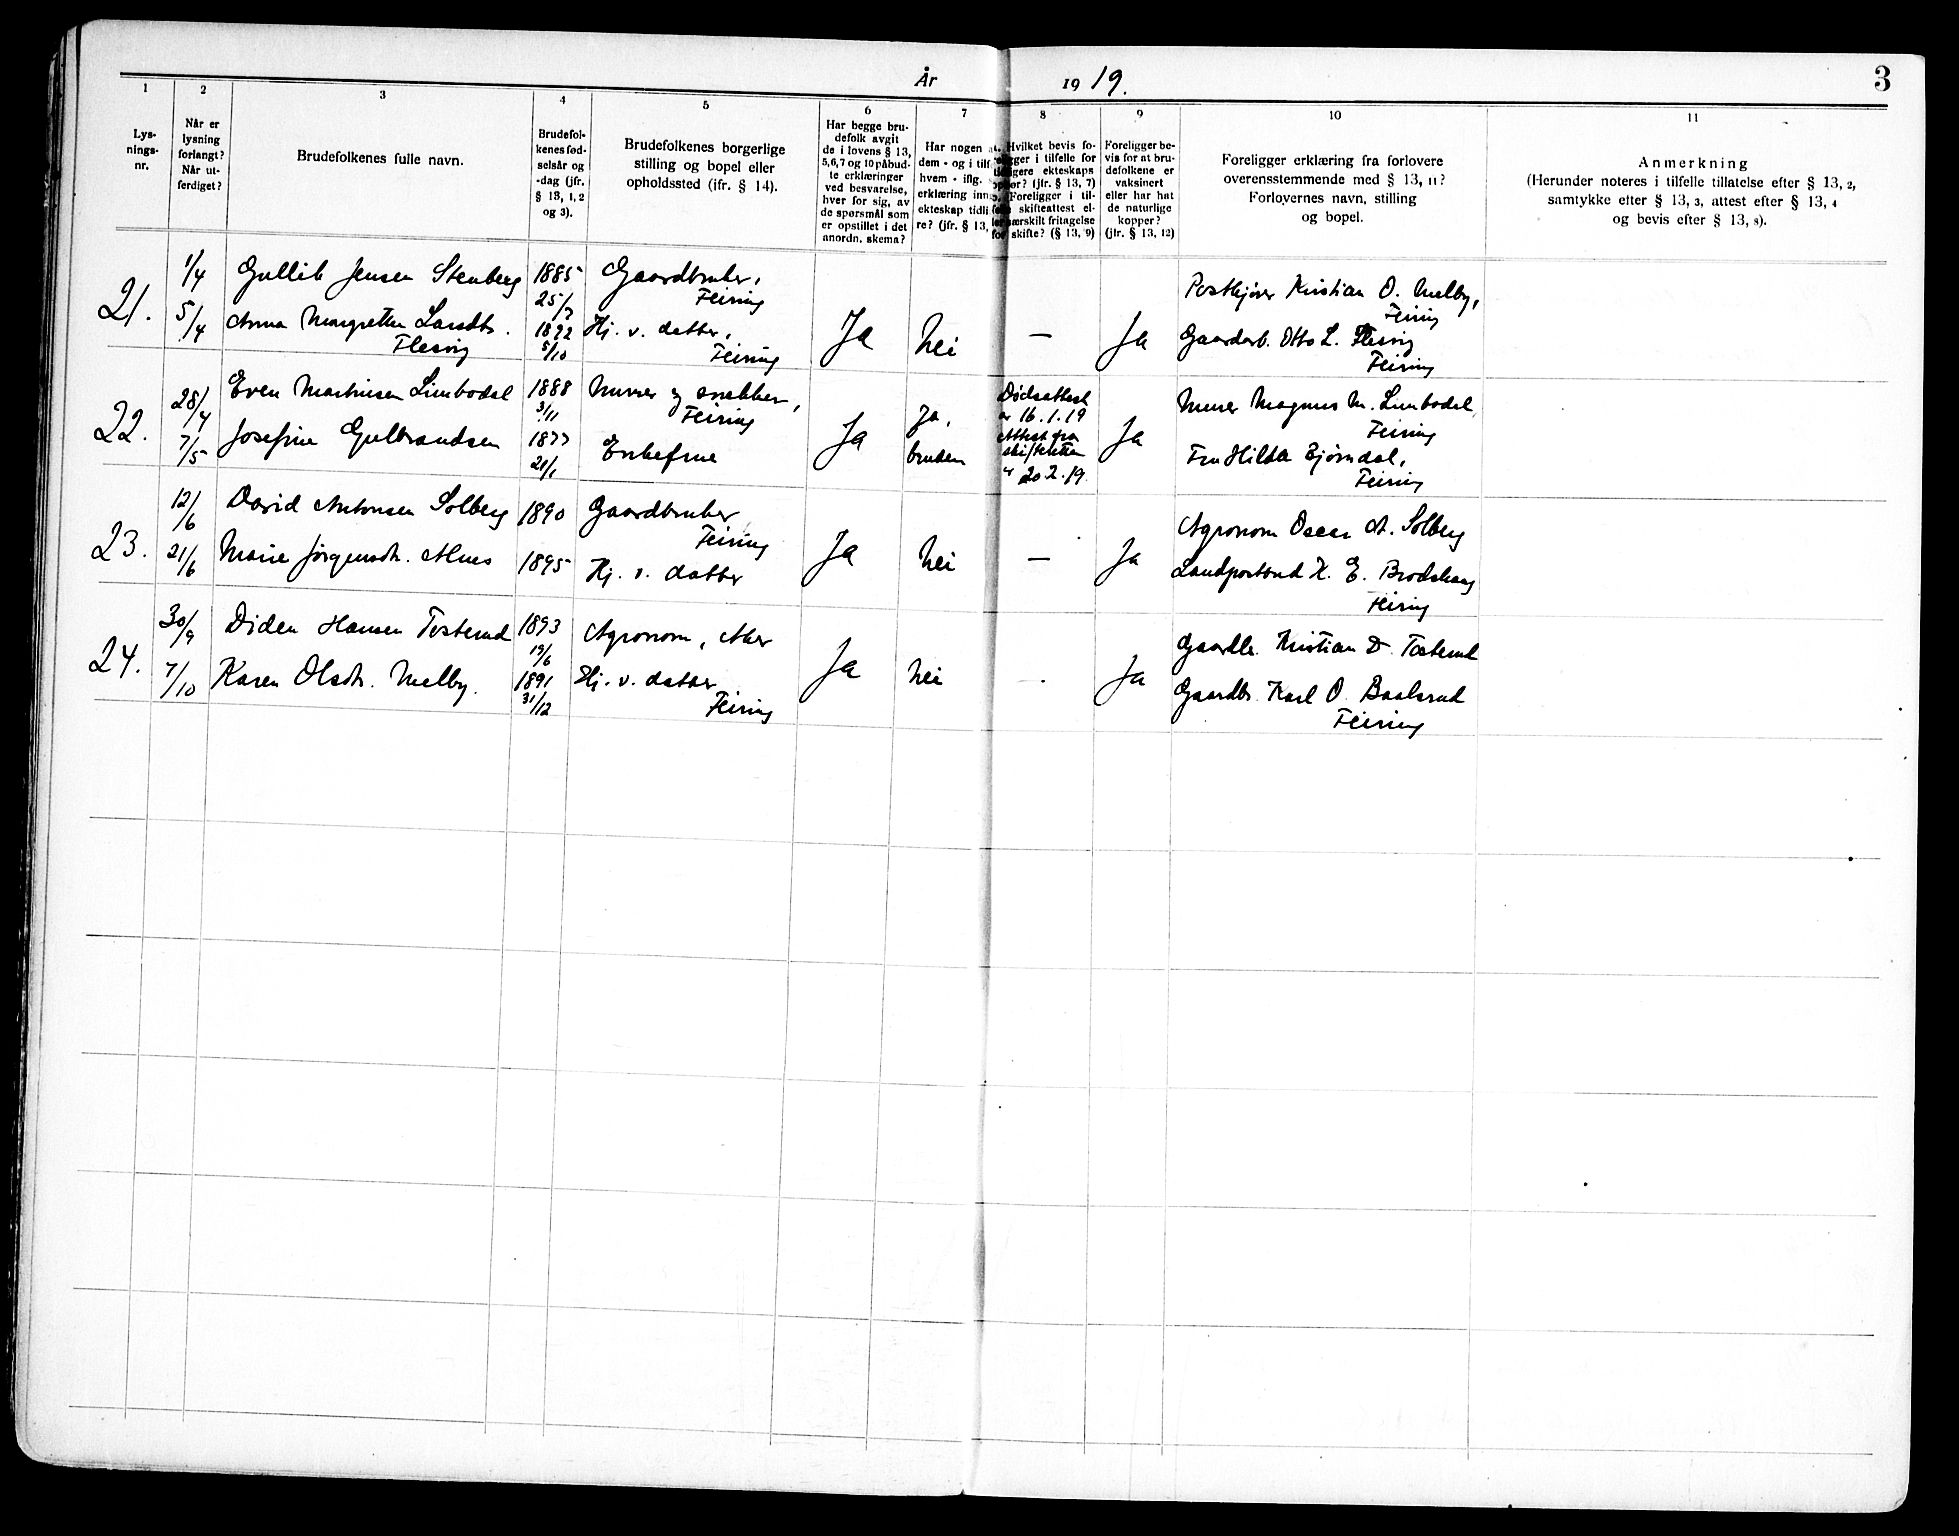 År 1919. 3
1 2 3 4 5 6 7 8 9 10 11
Lys-
nings-
nr.
Når er
lysning
forlangt?
Når ut-
ferdiget?
Brudefolkenes fulle navn.
Brudefol-
kenes fød-
selsår og
-dag (jfr.
§ 13, 1, 2
og 3).
Brudefolkenes borgerlige
stilling og bopel eller
opholdssted (ifr. § 14).
Har begge bru-
defolk avgit
de i lovens § 13,
5, 6, 7 og 10 påbud-
te erklæringer
ved besvarelse,
hver for sig, av
de spørsmål som
er opstillet i det
anordn. skema?
Har nogen
dem - og i tilf
hvem - iflg.
erklæring inng
ekteskap tidli
re? (jfr. § 13,
Hvilket bevis fo-
religger i tilfelle for
tidligere ekteskaps
(jfr. § 13, 7)
Foreligger i til-
skifteattest el-
særskilt fritagelse
for skifte? (§ 13, 9)
Foreligger be-
vis for at bru-
defolkene er
vaksinert
eller har hat
de naturlige
kopper?
(jfr. § 13, 12)
Foreligger erklæring fra forlovere
overensstemmende med § 13, 11?
Forlovernes navn, stilling
og bopel.
Anmerkning
(Herunder noteres i tilfelle tillatelse efter § 13, 2,
samtykke efter § 13, 3, attest efter § 13, 4
og bevis efter § 13, 8).
21.
1/4
5/4
Gullik Jensen Stenberg
Anna Margrethe Larsdtr.
Flesvig
1885
25/7
1892
5/10
Gaardbruker,
Feiring
Hj. v. datter,
Feiring
Ja
Nei
—
Ja
Kristian O. Melby,
Feiring
Gaardb. Otto L. Flesvig
Feiring
22.
28/4
7/5
Even Martinsen Limbodal
Josefine Gulbrandsen
1888
3/11
1877
21/1
Murer og snekker,
Feiring
Enkefrue
Ja
Ja,
bruden
Dødsattest
av 16.1.19
Attest fra
skifteretten
av 20.2.19.
Ja
Murer Magnus M. Limbodal,
Feiring
Fru Hilda Bjørndal,
Feiring
23.
12/6
21/6
David Antonsen Solberg
Marie Jørgensdtr. Alnes
1890
1895
Gaardbruker
Feiring
Hj. v. datter
Ja
Nei
—
Ja
Agronom Oscar A. Solberg
Landpostbud K. E. Brodshaug
Feiring
24.
30/9
7/10
Diden Hansen Tosterud
Karen Olsdtr. Melby.
1893
19/6
1891
31/12
Agronom, Aker
Hj. v. datter
Feiring
Ja
Nei
-.
Ja
Gaardbr. Kristian D. Tosterud
Gaardbr. Karl O. Baalsrud
Feiring